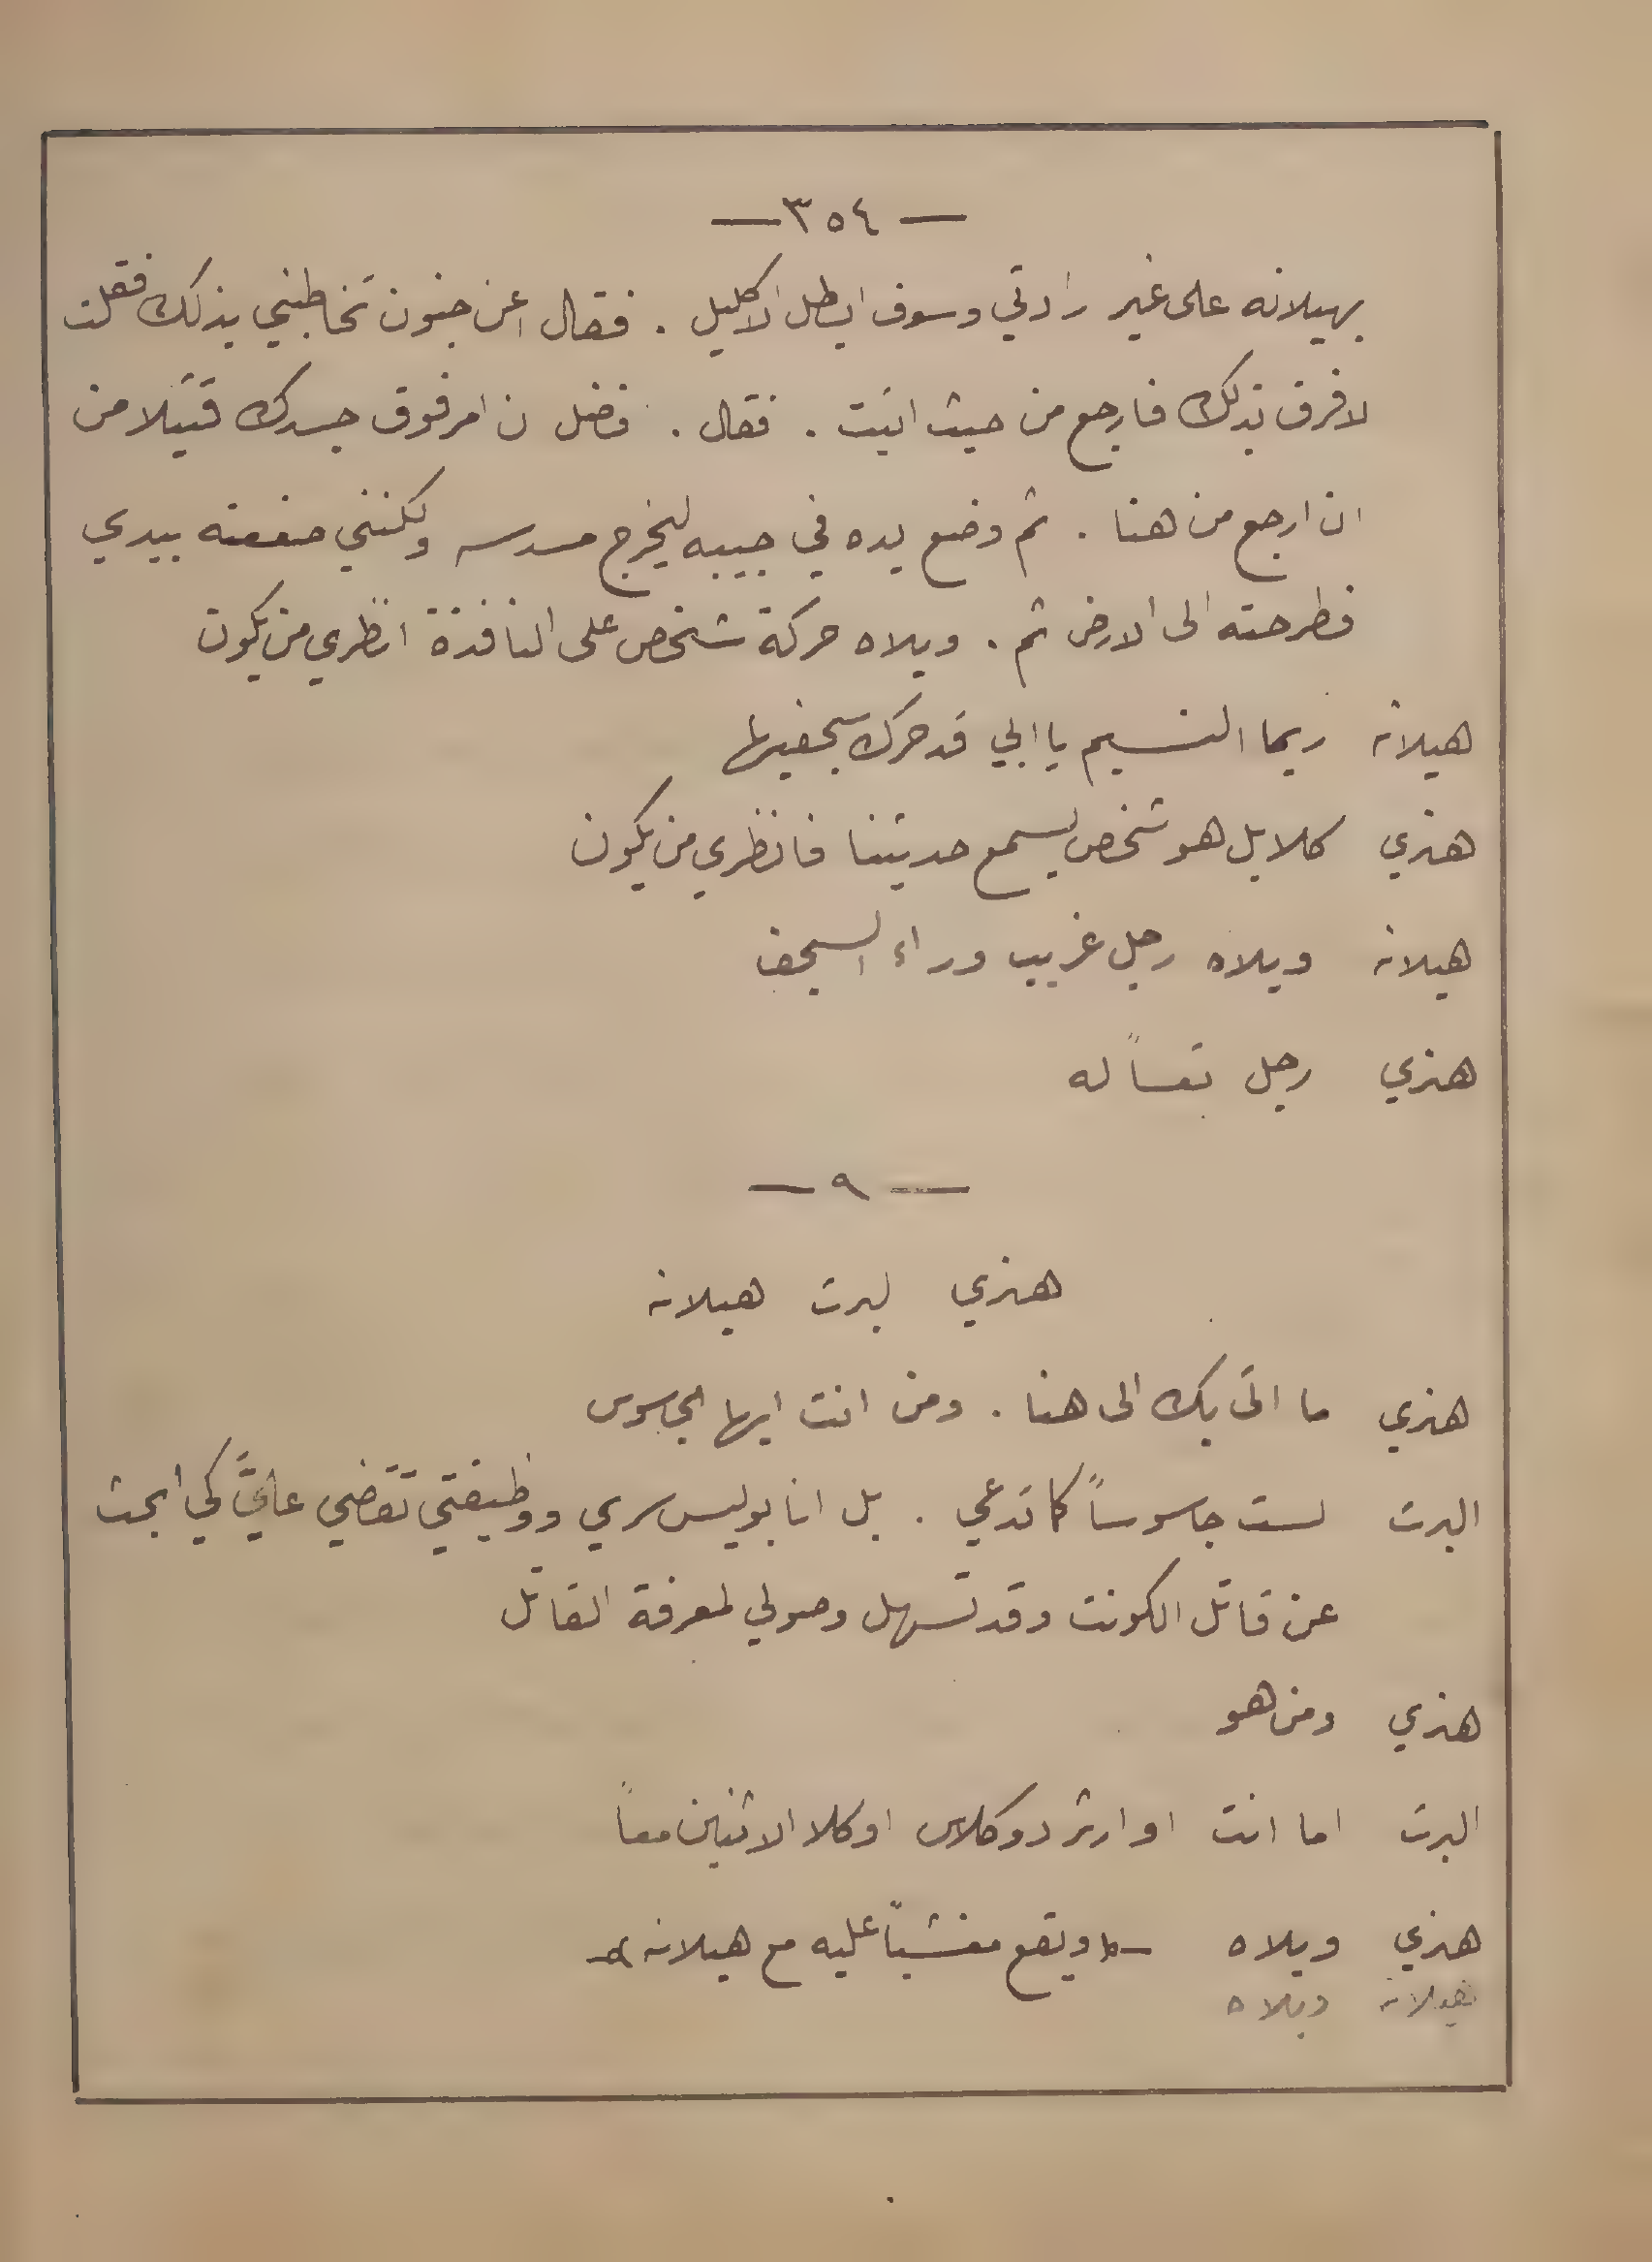 — ٣٥٤ —
بهيلانه على غير رادتي وسوف ابطل الاكليل . فقال اعن جنون تخاطبني بذلك فقلت
لا فرق بذلك فارجع من حيث اتيت . فقال . فضل ن امر فوق جسدك قتيلا من
ان ارجع من هنا . ثم وضع يده في جيبه ليخرج مسدسه ولكنني صفعته بيدي
فطرحته الى الارض ثم . ويلاه حركة شخص على النافذة انظري من يكون
هيلانه ربما النسيم يا ابي قد حرك سجفيها
هنري كلا بل هو شخص يسمع حديثنا فانظري من يكون
هيلانه ويلاه رجل غريب وراء السجف
هنري رجل تعساً له
— ٩ —
هنري لبرت هيلانه
هنري ما اتى بك الى هنا . ومن انت ايها الجاسوس
البرت لست جاسوساً كما تدعي . بل انا بوليس سري ووظيفتي تقضي عليَّ كي ابحث
عن قاتل الكونت وقد تسهل وصولي لمعرفة القاتل
هنري ومن هو
البرت اما انت او ارثر دوكلاس او كلا الاثنين معاً
هنري ويلاه ويقع مغشياً عليه مع هيلانه
هيلانه ويلاه